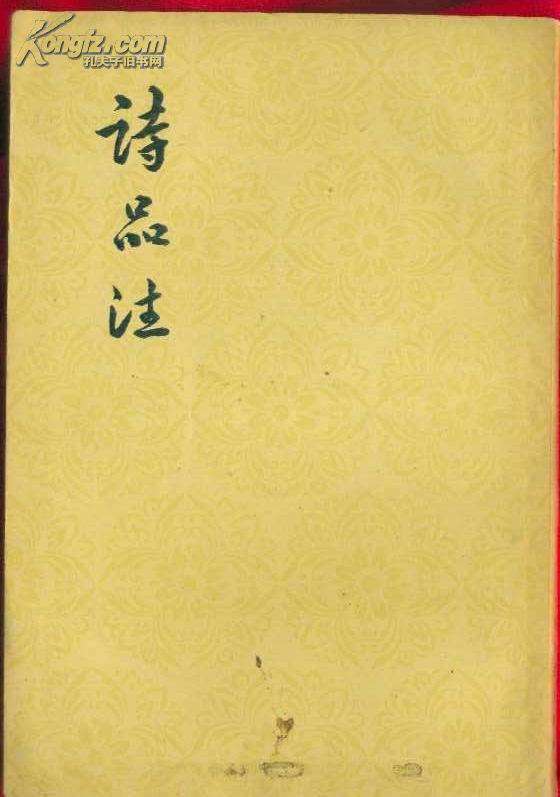 Kongfz.com
孔夫子旧书网
詩品注